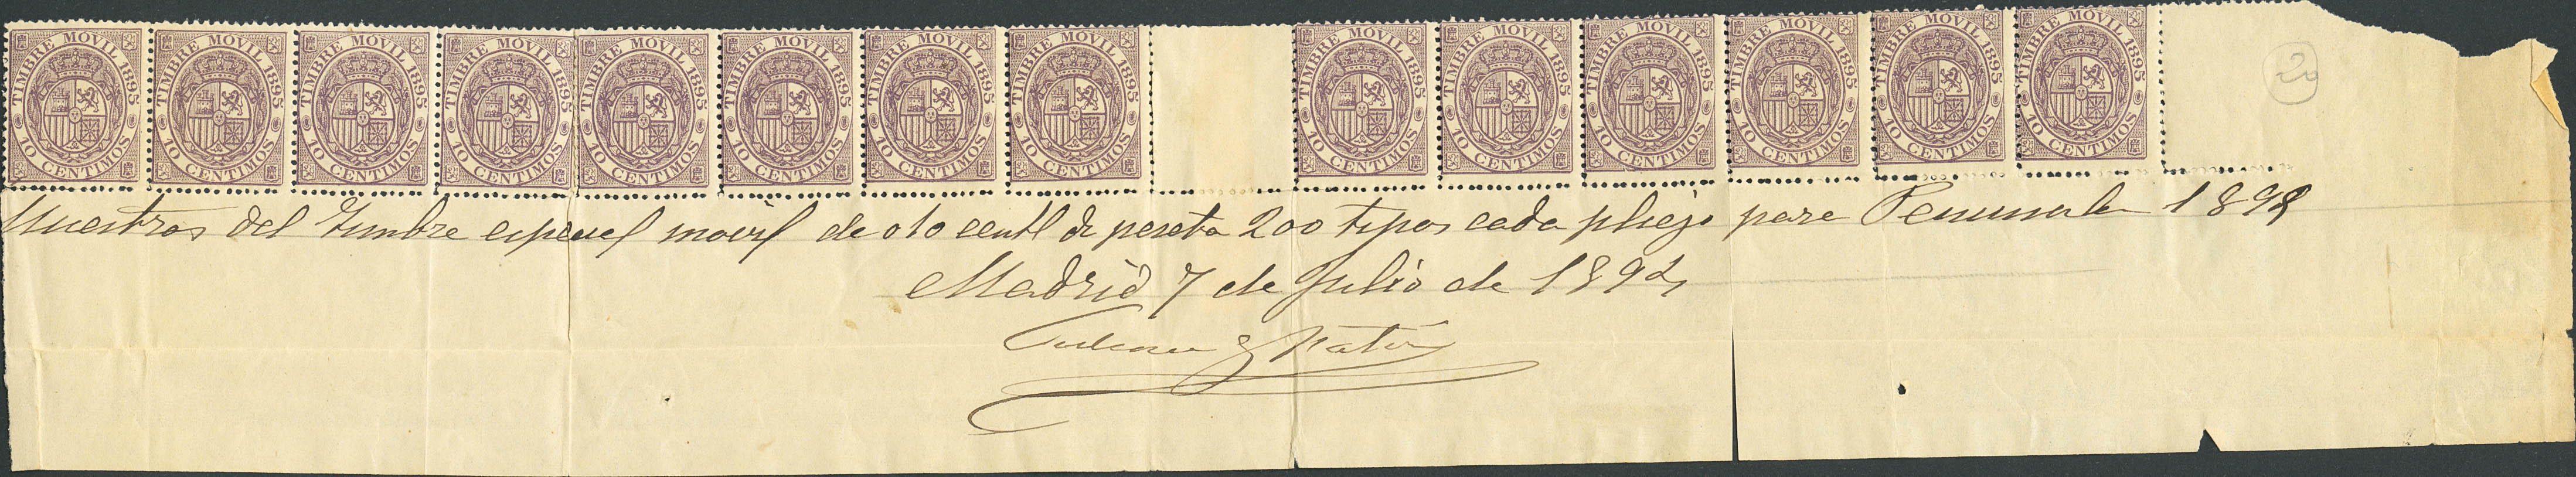 TIMBRE MÓVIL 1895 10 CENTIMOS
TIMBRE MÓVIL 1895 10 CENTIMOS
TIMBRE MÓVIL 1895 10 CENTIMOS
TIMBRE MÓVIL 1895 10 CENTIMOS
TIMBRE MÓVIL 1895 10 CENTIMOS
TIMBRE MÓVIL 1895 10 CENTIMOS
TIMBRE MÓVIL 1895 10 CENTIMOS
TIMBRE MÓVIL 1895 10 CENTIMOS
TIMBRE MÓVIL 1895 10 CENTIMOS
TIMBRE MÓVIL 1895 10 CENTIMOS
TIMBRE MÓVIL 1895 10 CENTIMOS
TIMBRE MÓVIL 1895 10 CENTIMOS
TIMBRE MÓVIL 1895 10 CENTIMOS
TIMBRE MÓVIL 1895 10 CENTIMOS
20
Muestras del timbre especial movil de 010 centl de peseta 200 tipos cada pliego para Peninsula
Madrid 7 de Julio de